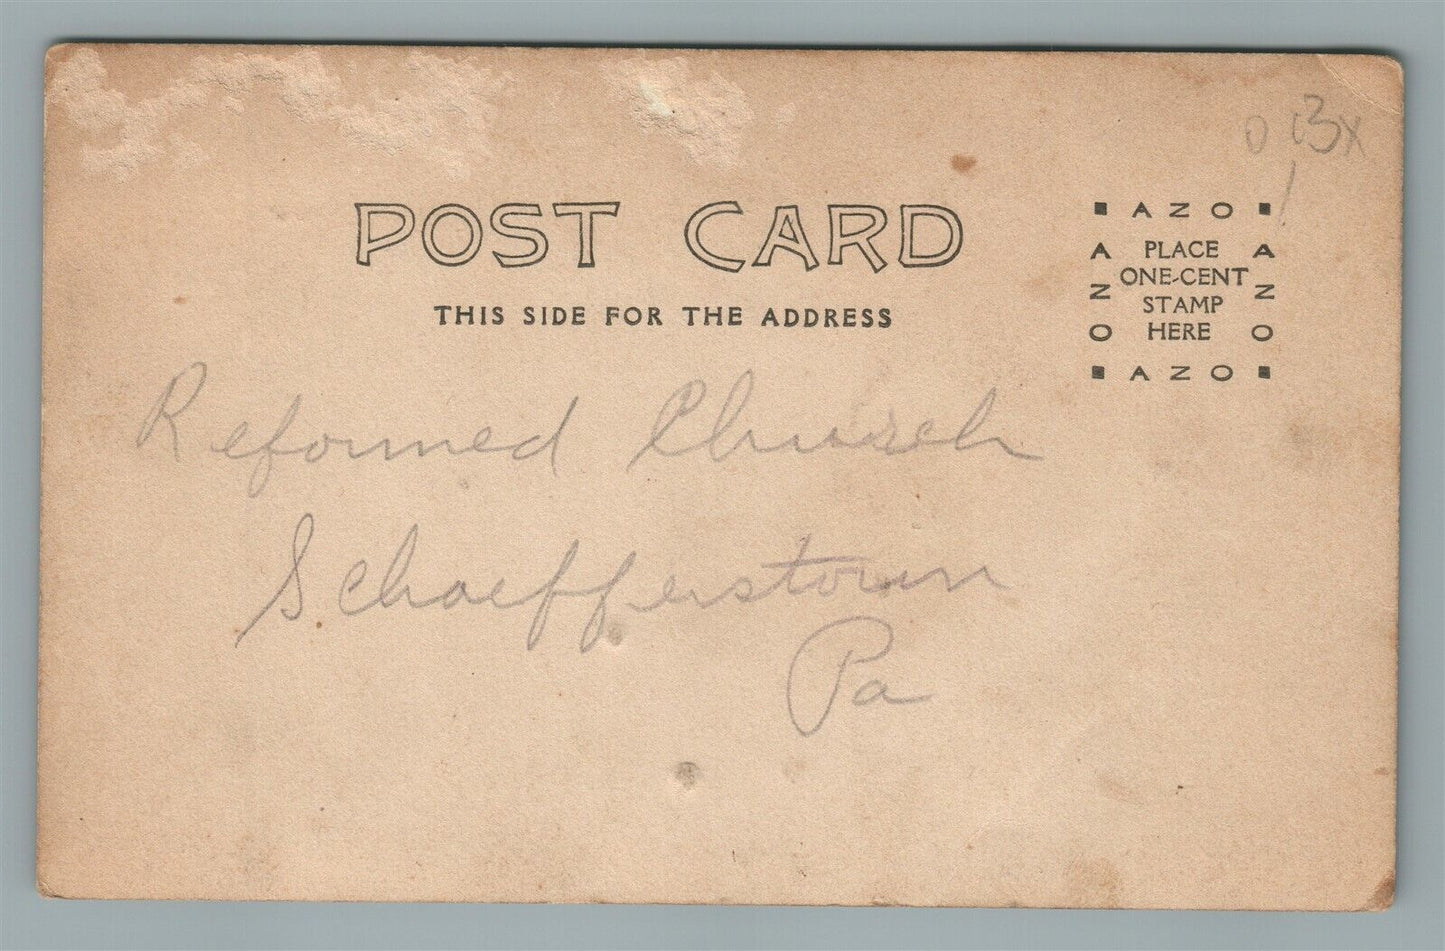 POST CARD
THIS SIDE FOR THE ADDRESS
AZO
PLACE
ONE-CENT
STAMP
HERE
AZO
AZO
AZO
Reformed Church
Schaefferstown
Pa